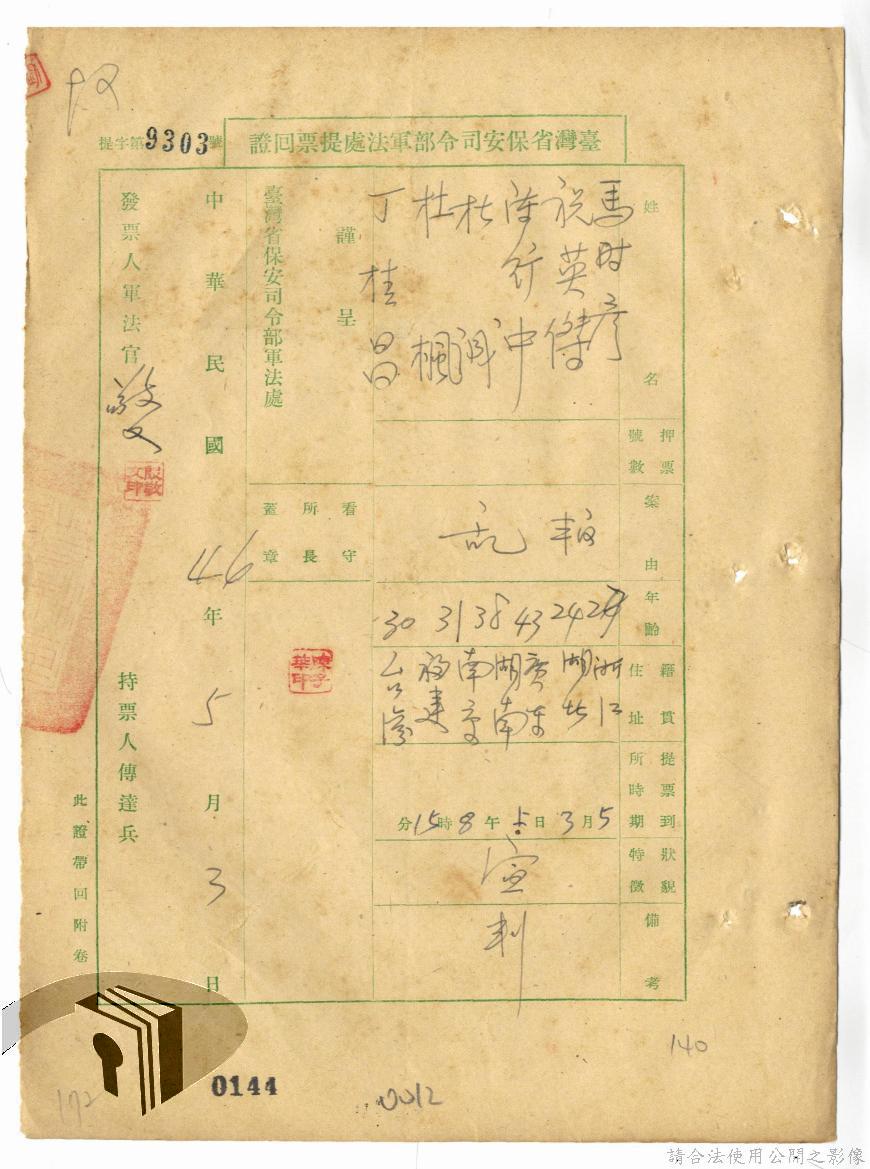 提字第9303號
臺灣省保安司令部軍法處提票回證
姓名
馬時彥
祝英傑
陳行中
杜
杜楓
丁桂昌
押票號數
案由
叛亂
年齡
24
43
38
31
30
籍貫住址
浙江
湖北
廣東
湖南
南京
福建
台灣
提票到所時期
5月3日上午8時15分
狀貌特徵
備考
宣判
謹呈
臺灣省保安司令部軍法處
看守所長蓋章
中華民國46年5月3日
發票人軍法官
殷敬文印
持票人傳達兵
此證帶回附卷
0144
0012
140
172
請合法使用公開之影像